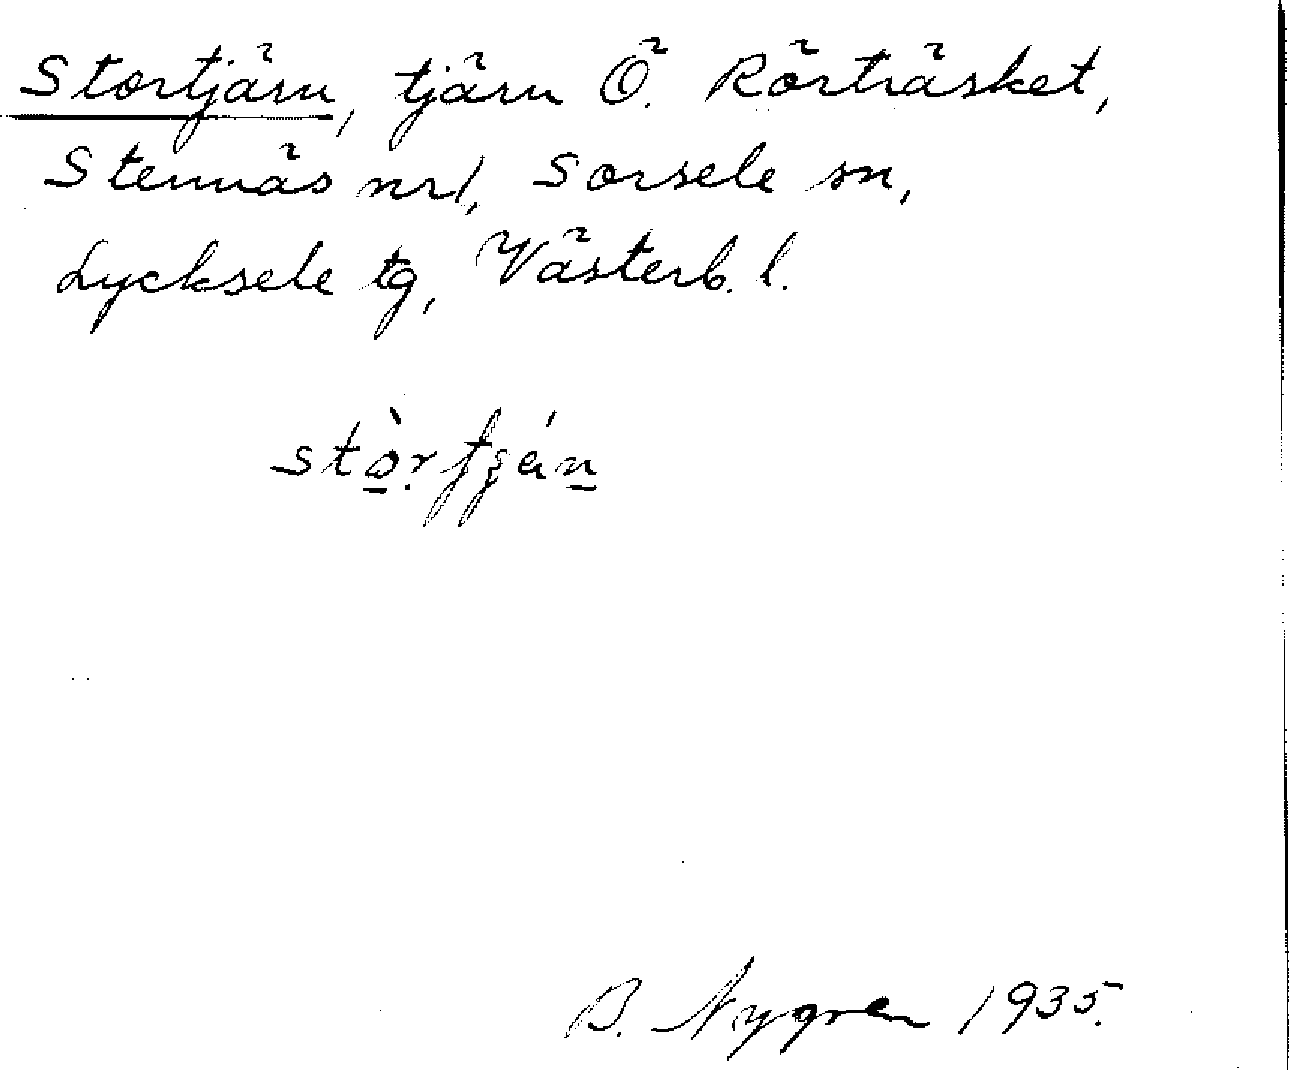 Stortjärn, tjärn Ö. Rörträsket,
Stennäs nr 1, Sorsele sn,
Lycksele tg, Västerb. l.
B. Nygren 1935.